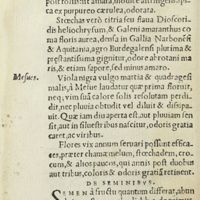 post
pica ex purpureo cærula, odorata.
Stœchas verò citria seu flaua Dioscori
di heliochrysum, & Galeni amaranthus co
ma floris aurea, densa in Gallia Narbonēsi
& Aquitania, agro Burdegalensi plurima &
præstantissima gignitur, odore abrotani ma
ris, & etiam sapore, sed minus amaro.
Mesues.
Viola nigra vulgo martia & quadrages
malis, à Mesue laudatur quæ prima florue
rit, neq; vim suâ calore solis resolutam perdi
dit, nec pluuia obtudit vel diluit & dissipa-
uit. Quæ iam diu aperta est, aut pluuiam sen
sit, aut in siluestribus nascitur, odoris gratia
caret, ac viribus.
Flores vix annum seruari possunt effica
ces, præter chamæmelum, stœchados, croci-
cum, & alios paucos, qui annis post duobus
aut tribus, coloris & odoris gratiā retinent.
DE SEMINIBVS.
SEMEN à fructu quantum differat, abun